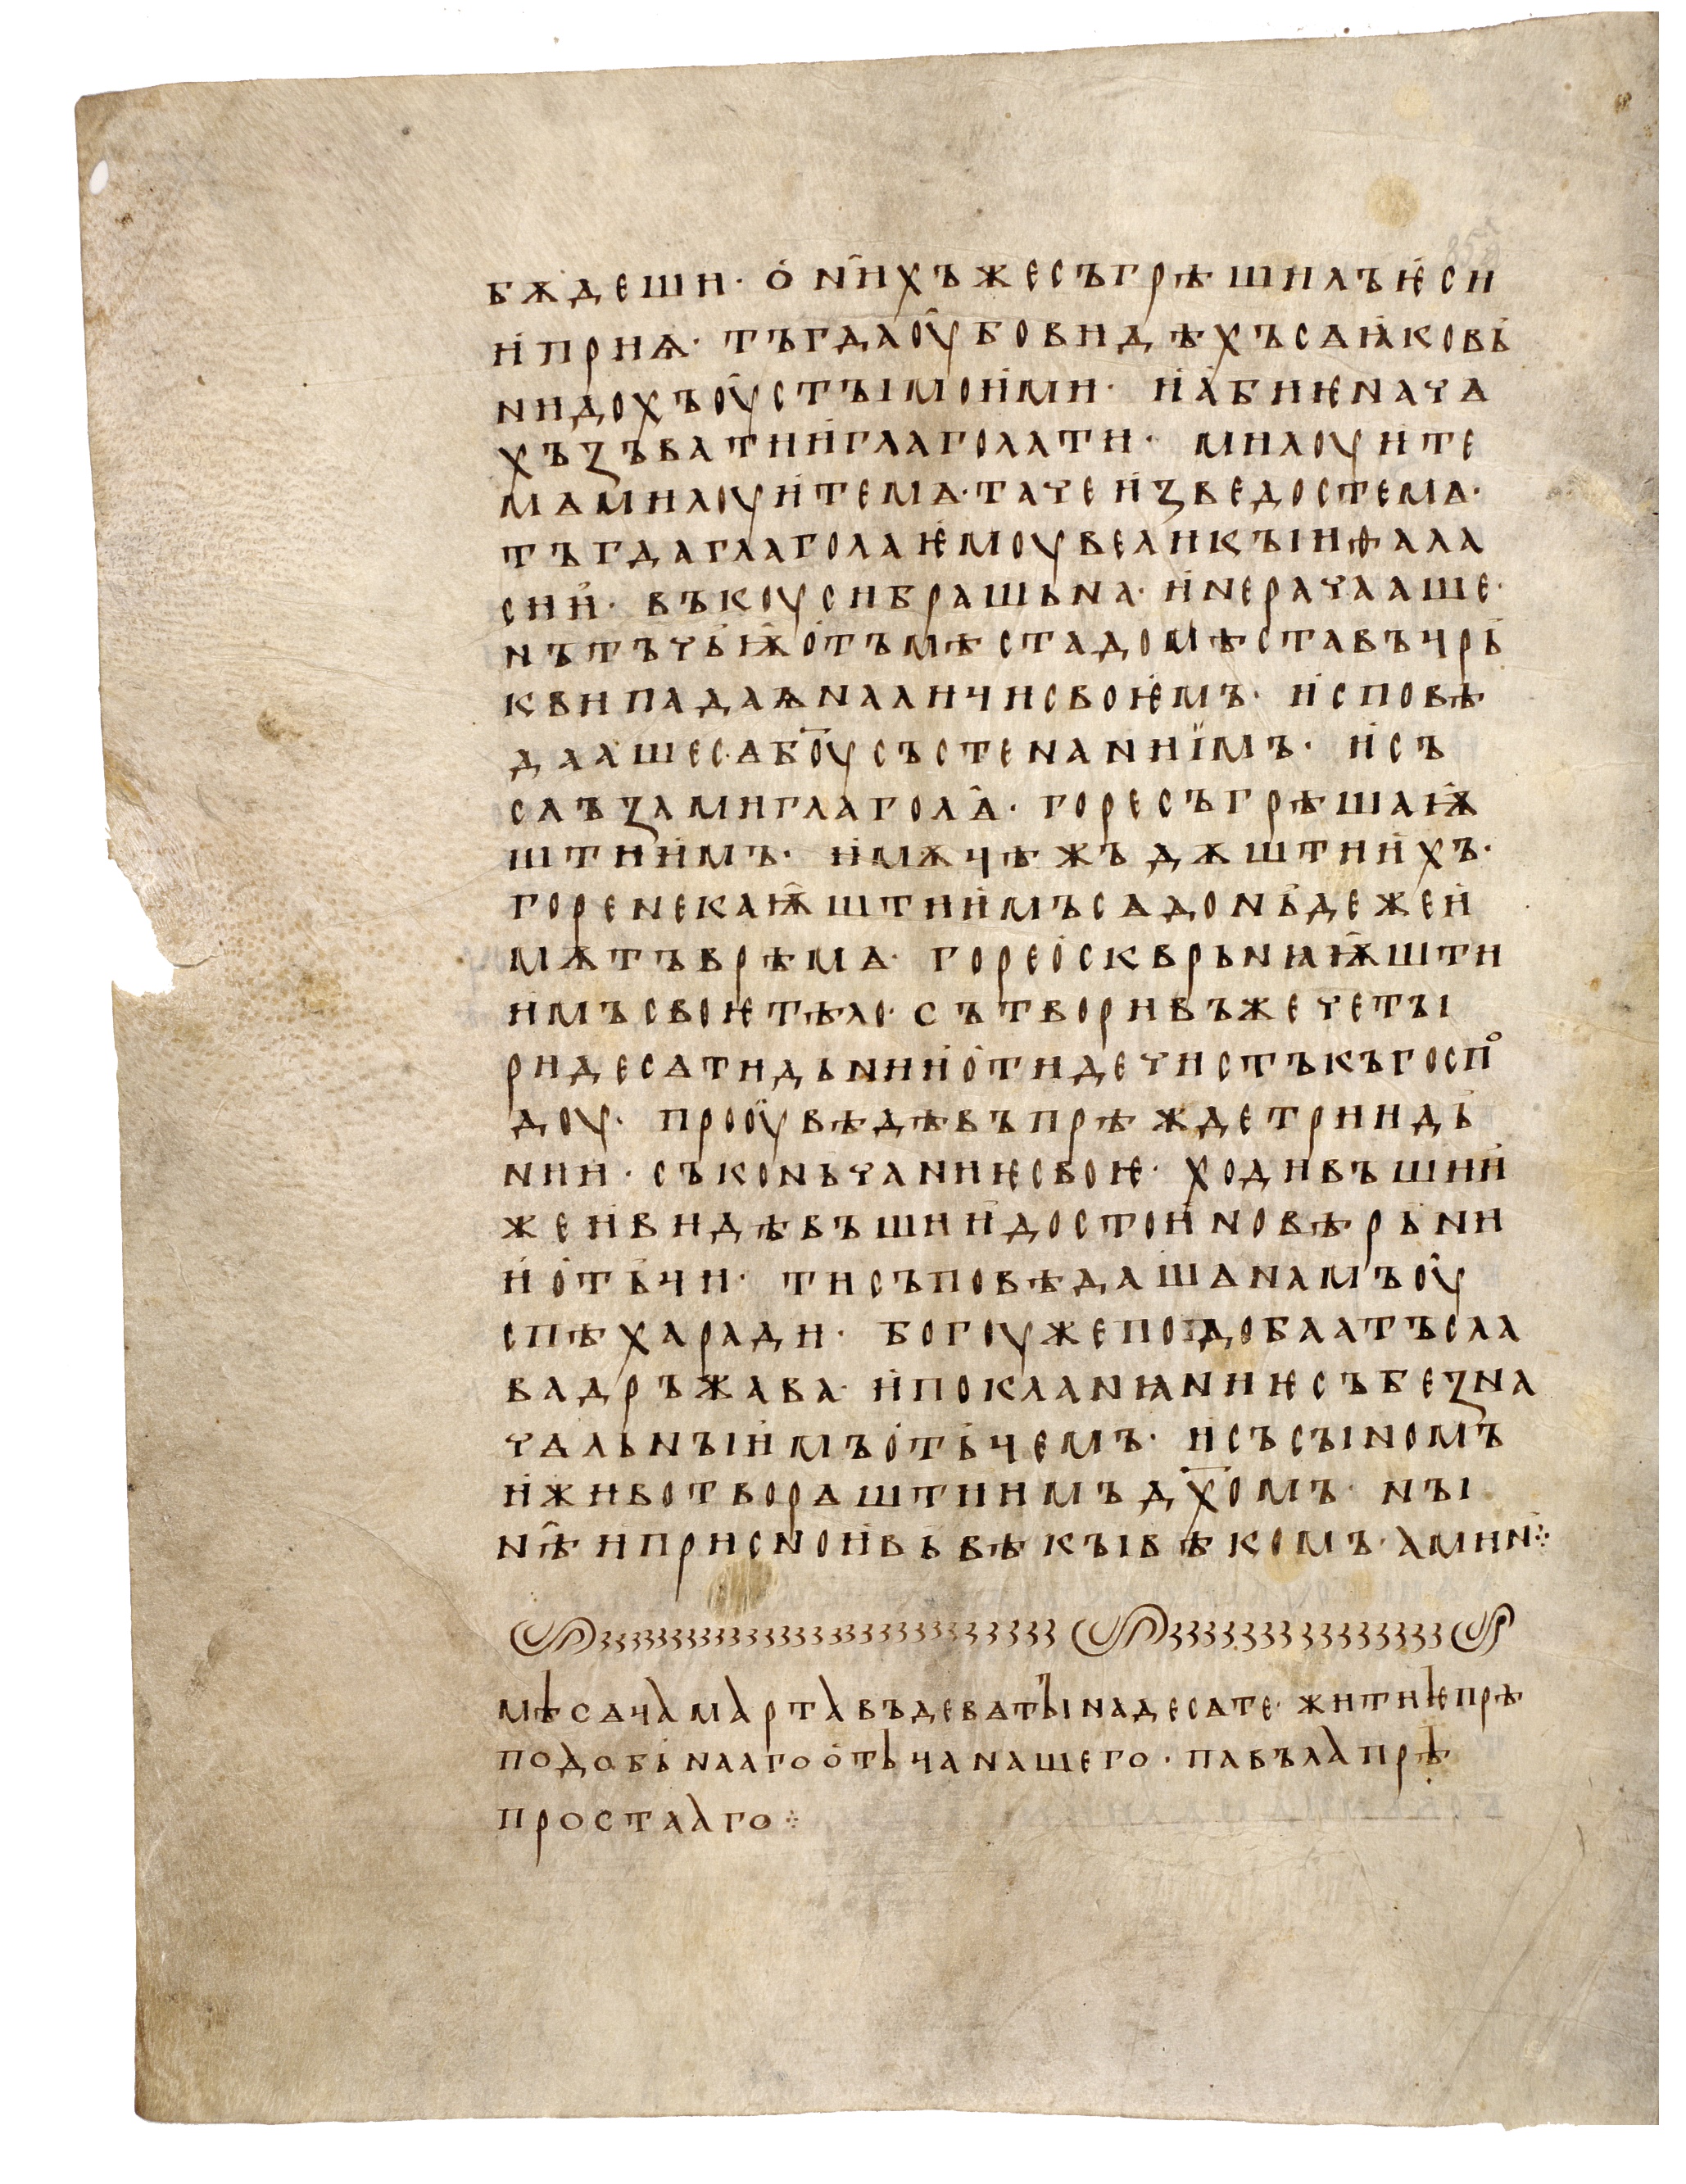 бѫдеши· о҅ н҅и҅хъжесъгрѣшилъѥ҅си
и҅приѩ· тъгдаоу҅бовидѣхъсѧꙗ҅ковь҅
нидохъоу҅стъімои҅ми· и҅а҅биѥначѧ
хъзъватии҅глаголати· милоуи҅те
мѧмилоуи҅темѧ·тачеи҅зведостемѧ·
тъгдаглаголаѥ҅моувеликъіиѳала
сии҅· въкоусибрашьна· и҅нерачааше·
нътъчьѭ҅о҅тъмѣстадомѣставъцрь҅
квипадаѩналицисвоѥ҅мъ· и҅сповѣ
даашесѧбо҅усъстенаниї҅мъ· и҅съ
слъзамиглаголѧ҅· горесъгрѣшаѭ҅
штиі҅мъ· и҅мѫцѣждѫштии҅хъ·
горенекаѭ҅штии҅мъсѧдоньдежеи҅
мѫтъврѣмѧ· горео҅скврьнꙗѭ҅шти
имъсвоѥтѣло· сътворивъжечетъі
ридесѧтидьнии҅о҅тидечистъкъгоспⷪ
доу· прооу҅вѣдѣвъпрѣждетриидь
нии· съконьчаниѥсвоѥ· ходивъшии҅
жеи҅видѣвъшии҅достои҅новѣрьни
и҅о҅тьци· тисъповѣдашѧнамъоу҅
спѣхаради· богоужеподобаатъсла
вадръжава· и҅покланꙗниѥсъбезна
чальнъіи҅мъо҅тьцемъ· и҅съсъіномъ
и҅животворѧштиимъдх҃омъ· нъі
нѣ҅иприснои҅вьвѣкъівѣкомъ·аминⷽ⁘
мѣсѧцамартавъдевѧтъінадесѧте· житиѥпрѣ
подобьнаагоо҅тьцанашего· павълапрѣ
простааго⁘